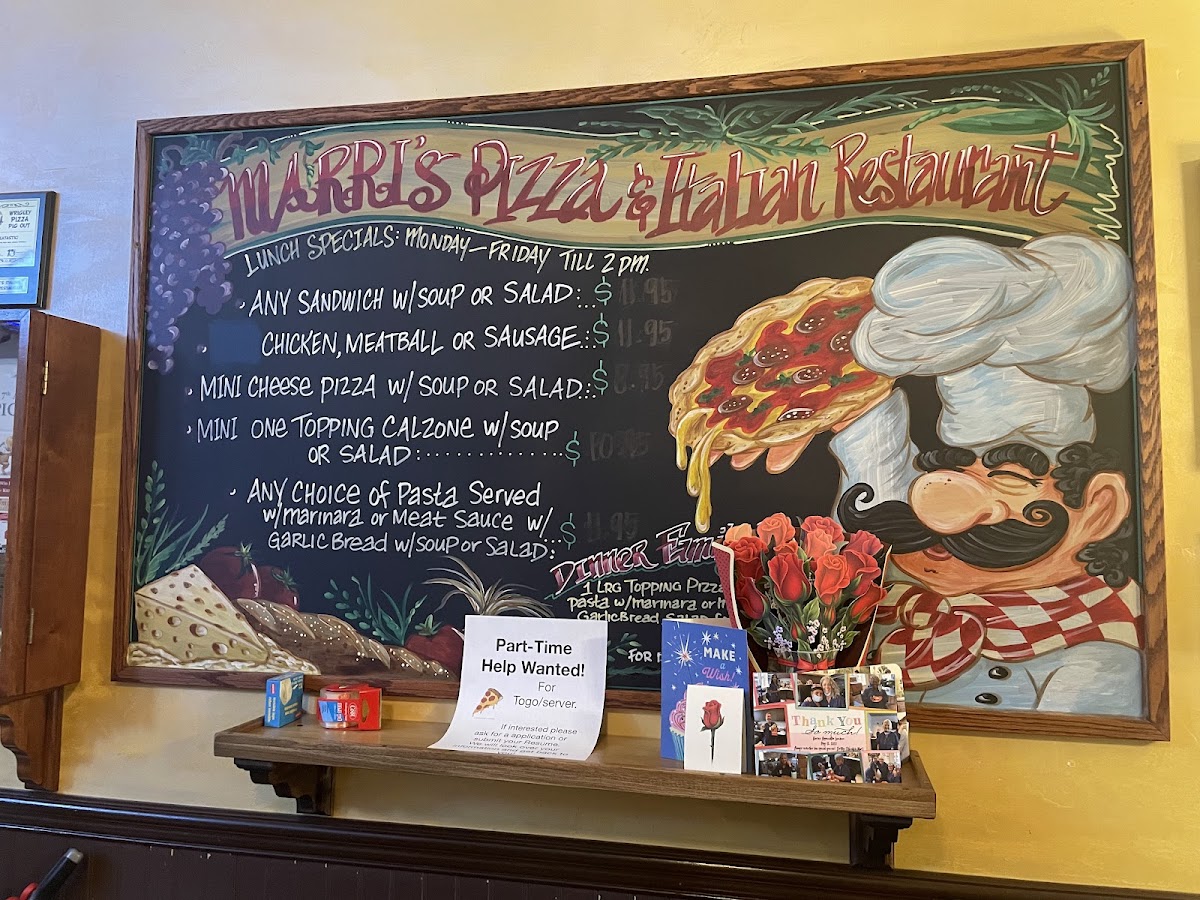 MARRI'S PIZZA & Italian Restaurant
LUNCH SPECIALS: MONDAY—FRIDAY TILL 2 PM.
• ANY SANDWICH W/SOUP OR SALAD:.. $ 11.95
• CHICKEN, MEATBALL OR SAUSAGE.:. $ 11.95
• MINI CHEESE PIZZA W/SOUP OR SALAD:. $ 8.95
• MINI ONE TOPPING CALZONE W/SOUP
OR SALAD : . . . . . . . . . . . . . $
• ANY CHOICE OF Pasta Served
w/marinara or Meat Sauce w/
GARLIC Bread w/SOUP OR SALAD: $ 11.95
DINNER
1 LRG TOPPING PIZZA
pasta w/marinara or
Garlic Bread
FOR
WRIGLEY
PIZZA
PIG OUT
Part-Time
Help Wanted!
For
Togo/server.
If interested please
ask for a application or
submit your Resume.
We will look over your
MAKE
a
Wish!
Thank You
So much!